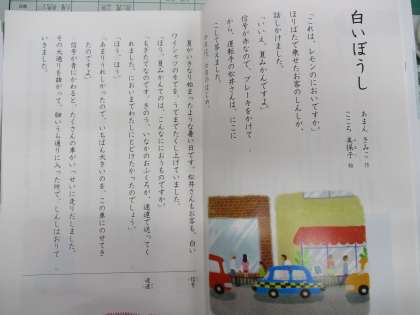 白いぼうし
あまん きみこ 作
「これは、レモンのにおいですか。」
ほりばたで乗せたお客のしんしが、
話しかけました。
「いいえ、夏みかんですよ。」
信号が赤なので、ブレーキをかけて
から、運転手の松井さんは、にこに
こして答えました。
夏がいきなり始まったような暑い日です。松井さんもお客も、白い
ワイシャツのそでを、うでまでたくし上げていました。
「ほう、夏みかんてのは、こんなににおうものですか。」
「もぎたてなのです。きのう、いなかのおふくろが、速達で送ってく
れました。においまでわたしにとどけたかったのでしょう。」
「ほう、ほう。」
「あまりうれしかったので、いちばん大きいのを、この車にのせてき
たのですよ。」
信号が青にかわると、たくさんの車がいっせいに走りだしました。
その大通りを曲がって、細いうら通りに入った所で、しんしはおりて
いきました。
信号
速達